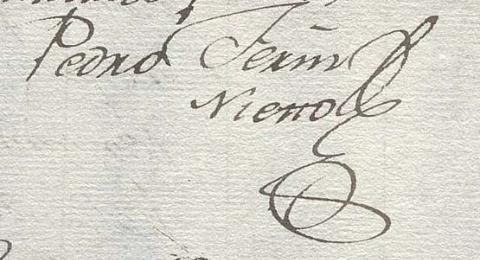 Pedro Ferm̄
Nietto